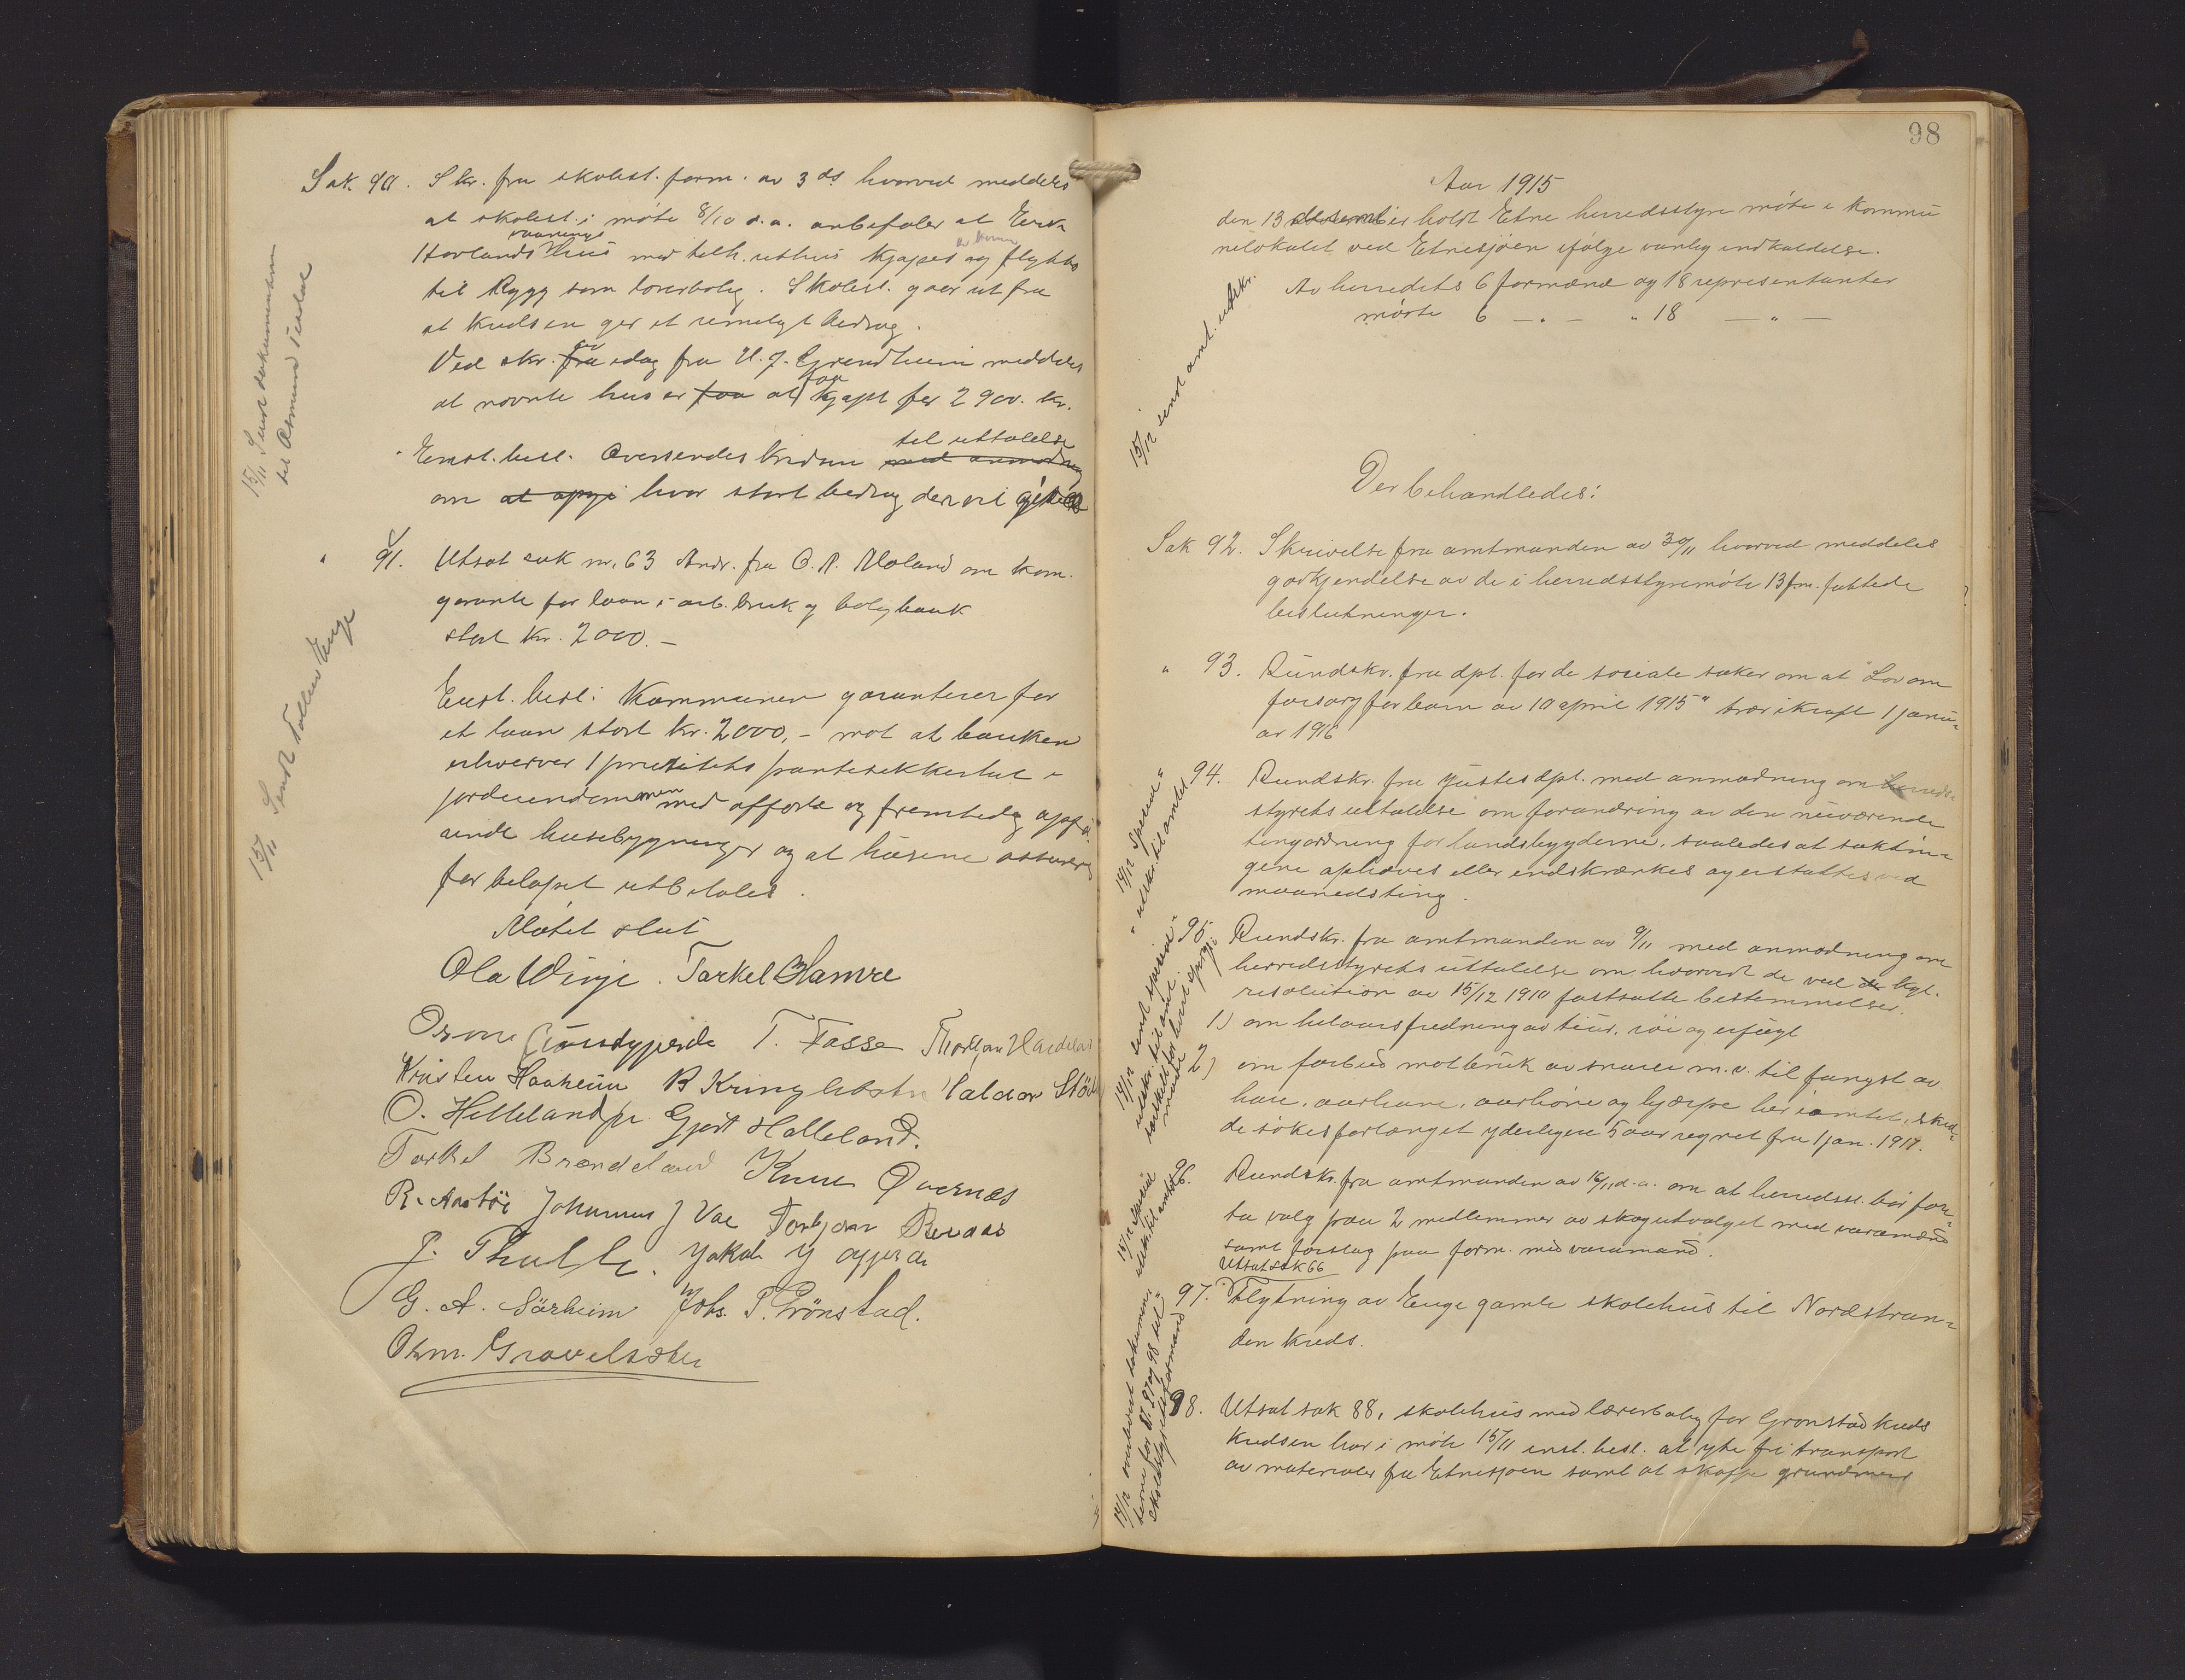 Sak 90. Skr. fra skolest. form. av 3 ds. hvorved meddeles
at skolest. i møte 8/10 d.a. anbefaler at Erik
Havlands vaanings hus med tilh. uthus kjøpes av kom. og flyttes
til Rygg som lærerbolig. Skolest. gaar ut fra
at kredsen gir et rimeligt bidrag.
Ved skr. av idag fra U. J. Grindheim meddeles
at nævnte hus er at faa kjøpt for 2900. kr.
Enst. besl. Oversendes kredsen til uttalelse
om hvor stort bidrag den vil
15/11 Sendt dokumenterne
til Asmund
" 91. Utsat sak nr. 63 Andr. fra O. A. Moland om kom.
garanti for laan i arb. bruk og boligbank
stort kr. 2000.-
Enst. besl: Kommunen garanterer for
et laan stort kr. 2000,- mot at banken
erhverver 1 prioritets pantesikkerhet i
jordeiendommen med opførte og fremtidig opfø-
rende husebygninger og at husene assureres
før beløpet utbetales.
15/11 Sendt Tollev Enge
Møtet slut
Ola Vinje. Torkel Hamre
Osmu T. Fosse
Kristen Haaheim B Kringlebotn Haldor
O. Helleland jr. Gjert Helleland.
Torkel Brændeland Knut Qvernæs
R. Aastøi Johannes J Vae Torbjørn
P. Thulle. Jakob
G. A. Særheim Johs. P. Grønstad.
Osm. Gravelsæter
98
Aar 1915
den 13 desember holdt Etne herredsstyre møte i kommu
nelokalet ved Etnesjøen ifølge vanlig indkaldelse.
Av herredets 6 formænd og 18 representanter
møtte 6 — " — " 18 — " —
15/12 sendt amt. utskr.
Der behandledes:
Sak 92. Skrivelse fra amtmanden av 30/11 hvorved meddeles
godkjendelse av de i herredsstyremøte 13 f.m. fattede
beslutninger.
" 93. Rundskr. fra dpt. for de sociale saker om at "Lov om
forsorg for barn av 10 april 1915" trær i kraft 1 janu-
ar 1916
94. Rundskr. fra justisdpt. med anmodning om herreds-
styrets uttalelse om forandring av den nuværende
tingordning for landsbygderne, saaledes at saktin-
gene ophæves eller indskrænkes og erstattes ved
maanedsting.
95. Rundskr. fra amtmanden av 9/11 med anmodning om
herredsstyrets uttalelse om hvorvidt de ved kgl.
resolution av 15/12 1910 fastsatte bestemmelser.
1) om helaarsfredning av tiur, røi og
2) om forbud mot bruk av snarer m.v. til fangst av
hare, aarhane, aarhøne og hjerpe her i amtet,
de søkes forlænget yderligere 5 aar regnet fra 1 jan. 1917.
96. Rundskr. fra amtmanden av 16/11 d.a. om at herredsst. bør fore-
ta valg paa 2 medlemmer av skogutvalget med varamænd
samt forslag paa form. med varamand.
Utsat sak 66
97. Flytning av Enge gamle skolehus til Nordstran-
den kreds.
98. Utsat sak 88, skolehus med lærerbolig for Grønstad kreds
Kredsen har i møte 15/11 enst. besl. at yte fri transport
av materialer fra Etnesjøen samt at skaffe grundmur